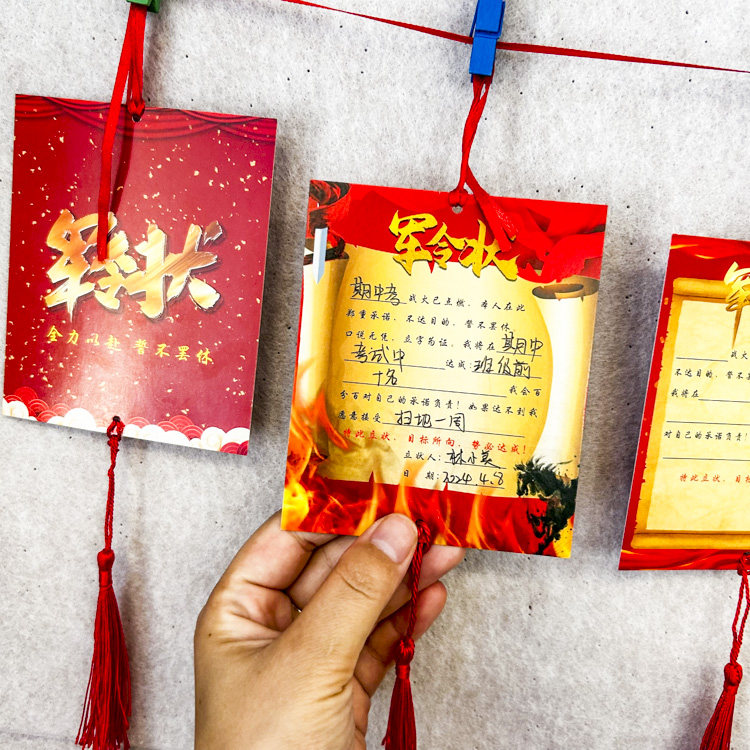 军令状
全力以赴 誓不罢休
军令状
期中考 战火已点燃，本人在此
郑重承诺，不达目的，誓不罢休
口说无凭，立字为证，我将在 期中
考试中 达成：班级前
十名 我会百
分百对自己的承诺负责！如果达不到我
愿意接受 扫地一周
特此立状，目标所向，誓必达成！
立状人：林小英
日 期：2024.4.8
军
战火
不达目的，
我将在
对自己的承诺负责！
特此立状，目标